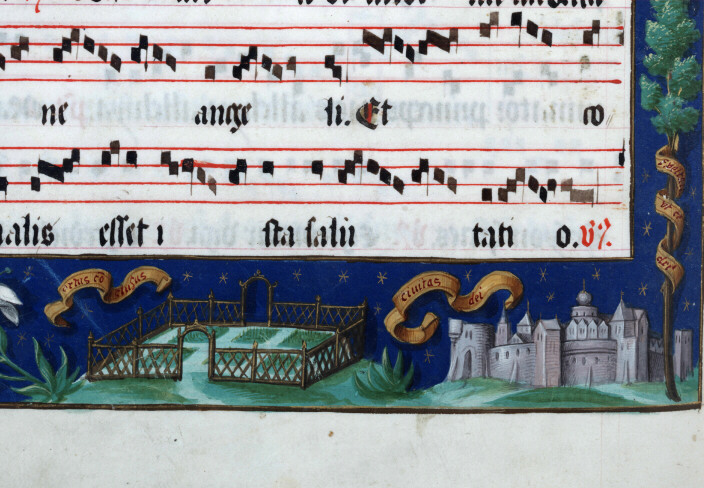 ne ange li. Et co
nalis esset i sta salu tati o. V.
ortus co clusus
ciuitas dei